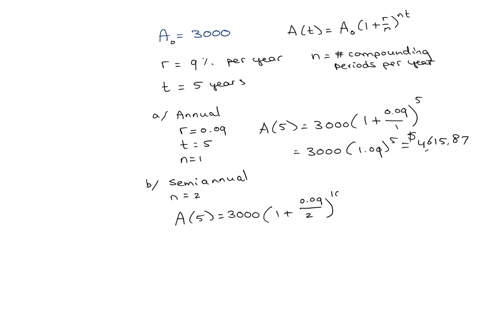 A₀ = 3000
A(t) = A₀(1 + r/n)^nt
r = 9% per year
n = # compounding periods per year
t = 5 years
a/ Annual
r = 0.09
t = 5
n = 1
A(5) = 3000(1 + 0.09/1)^5
= 3000(1.09)^5 = $4,615.87
b/ semiannual
n = 2
A(5) = 3000(1 + 0.09/2)